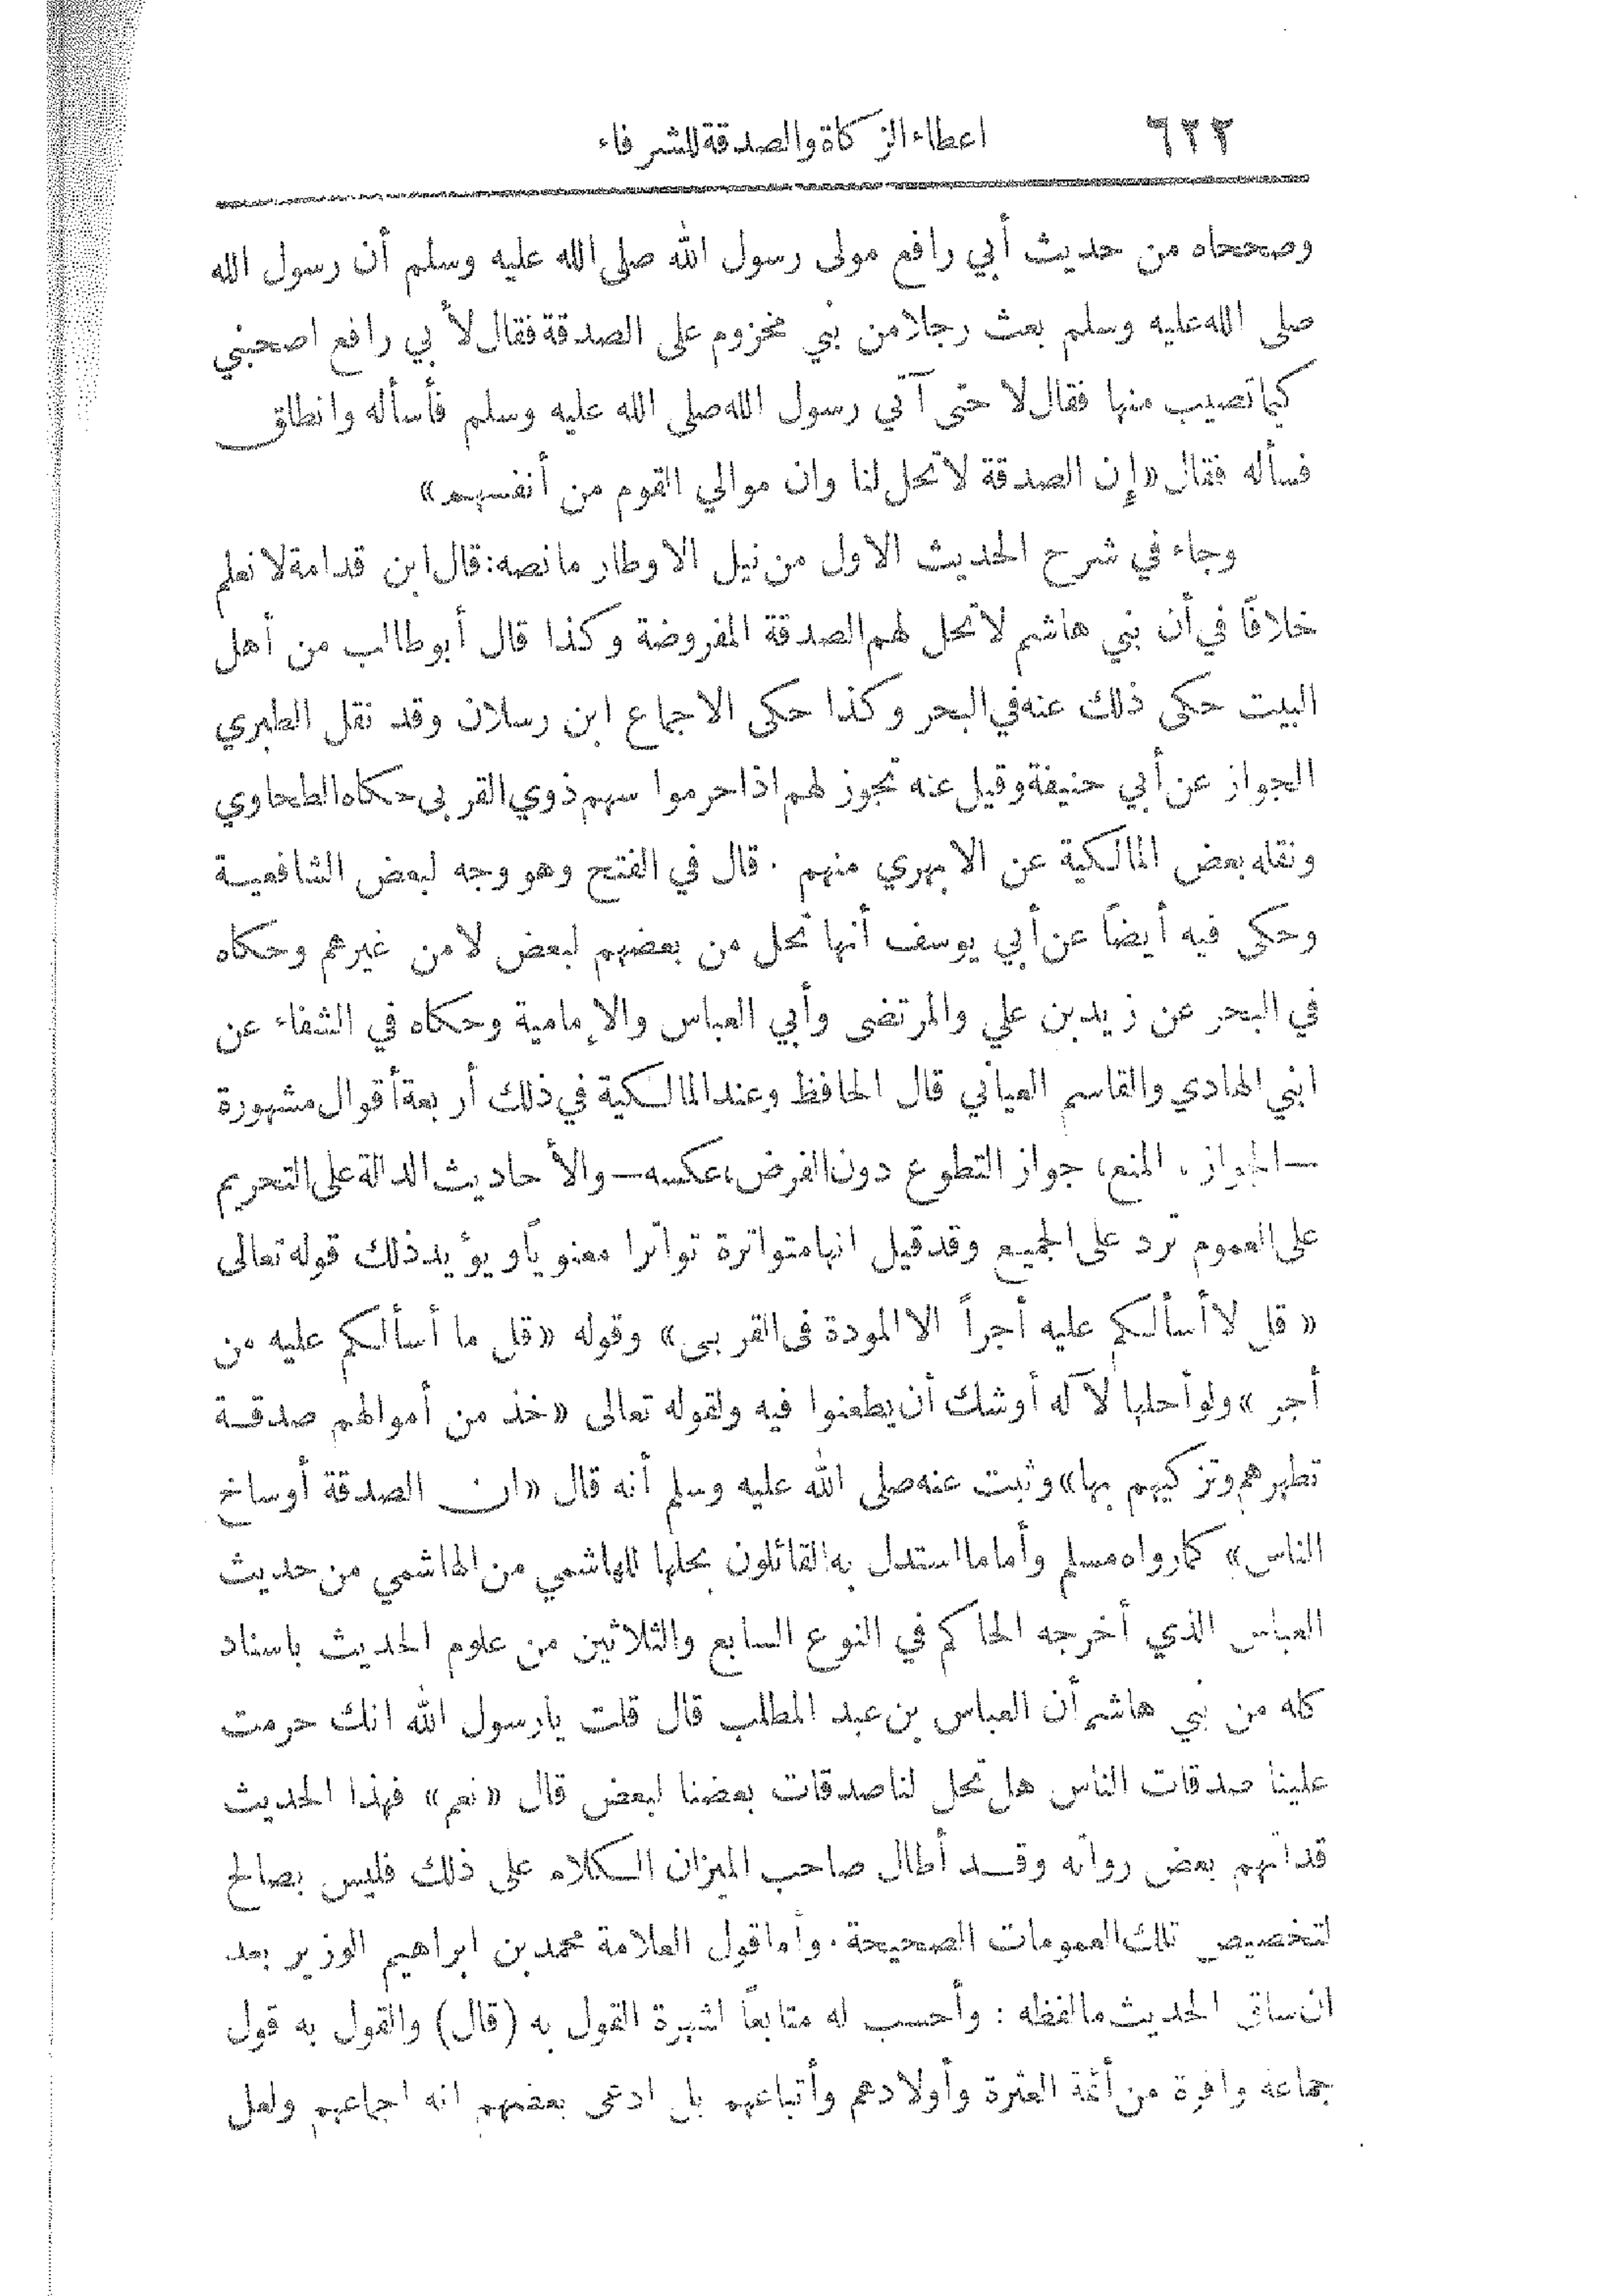 ٦٢٢ اعطاء الزكاة والصدقة للشرفاء
وصححاه من حديث أبي رافع مولى رسول الله صلى الله عليه وسلم أن رسول الله
صلى الله عليه وسلم بعث رجلا من بني مخزوم على الصدقة فقال لأبي رافع اصحبني
كيما تصيب منها فقال لا حتى آتي رسول الله صلى الله عليه وسلم فأسأله وانطلق
فسأله فقال «إن الصدقة لا تحل لنا وان موالي القوم من أنفسهم»
وجاء في شرح الحديث الاول من نيل الاوطار ما نصه: قال ابن قدامة لا نعلم
خلافًا في أن بني هاشم لا تحل لهم الصدقة المفروضة وكذا قال أبو طالب من أهل
البيت حكى ذلك عنه في البحر وكذا حكى الاجماع ابن رسلان وقد نقل الطبري
الجواز عن أبي حنيفة وقيل عنه تجوز لهم اذا حرموا سهم ذوي القربى حكاه الطحاوي
ونقله بعض المالكية عن الابهري منهم . قال في الفتح وهو وجه لبعض الشافعية
وحكى فيه أيضًا عن أبي يوسف أنها تحل من بعضهم لبعض لا من غيرهم وحكاه
في البحر عن زيد بن علي والمرتضى وأبي العباس والإمامية وحكاه في الشفاء عن
ابني الهادي والقاسم العياني قال الحافظ وعند المالكية في ذلك أربعة أقوال مشهورة
—الجواز ، المنع، جواز التطوع دون الفرض، عكسه— والأحاديث الدالة على التحريم
على العموم ترد على الجميع وقد قيل انها متواترة تواترا معنويًا ويؤيد ذلك قوله تعالى
« قل لا أسألكم عليه أجراً الا المودة فى القربى» وقوله «قل ما أسألكم عليه من
أجر» ولو أحلها لآله أوشك أن يطعنوا فيه ولقوله تعالى «خذ من أموالهم صدقة
تطهرهم وتزكيهم بها» وثبت عنه صلى الله عليه وسلم أنه قال «ان الصدقة أوساخ
الناس» كما رواه مسلم وأما ما استدل به القائلون بحلها للهاشمي من الهاشمي من حديث
العباس الذي أخرجه الحاكم في النوع السابع والثلاثين من علوم الحديث باسناد
كله من بني هاشم أن العباس بن عبد المطلب قال قلت يا رسول الله انك حرمت
علينا صدقات الناس هل تحل لنا صدقات بعضنا لبعض قال «نعم» فهذا الحديث
قد اتهم بعض رواته وقد أطال صاحب الميزان الكلام على ذلك فليس بصالح
لتخصيص تلك العمومات الصحيحة . وأما قول العلامة محمد بن ابراهيم الوزير بعد
ان ساق الحديث ما لفظه : وأحسب له متابعًا لشهرة القول به (قال) والقول به قول
جماعة وافرة من أئمة العترة وأولادهم وأتباعهم بل ادعى بعضهم انه اجماعهم ولعل